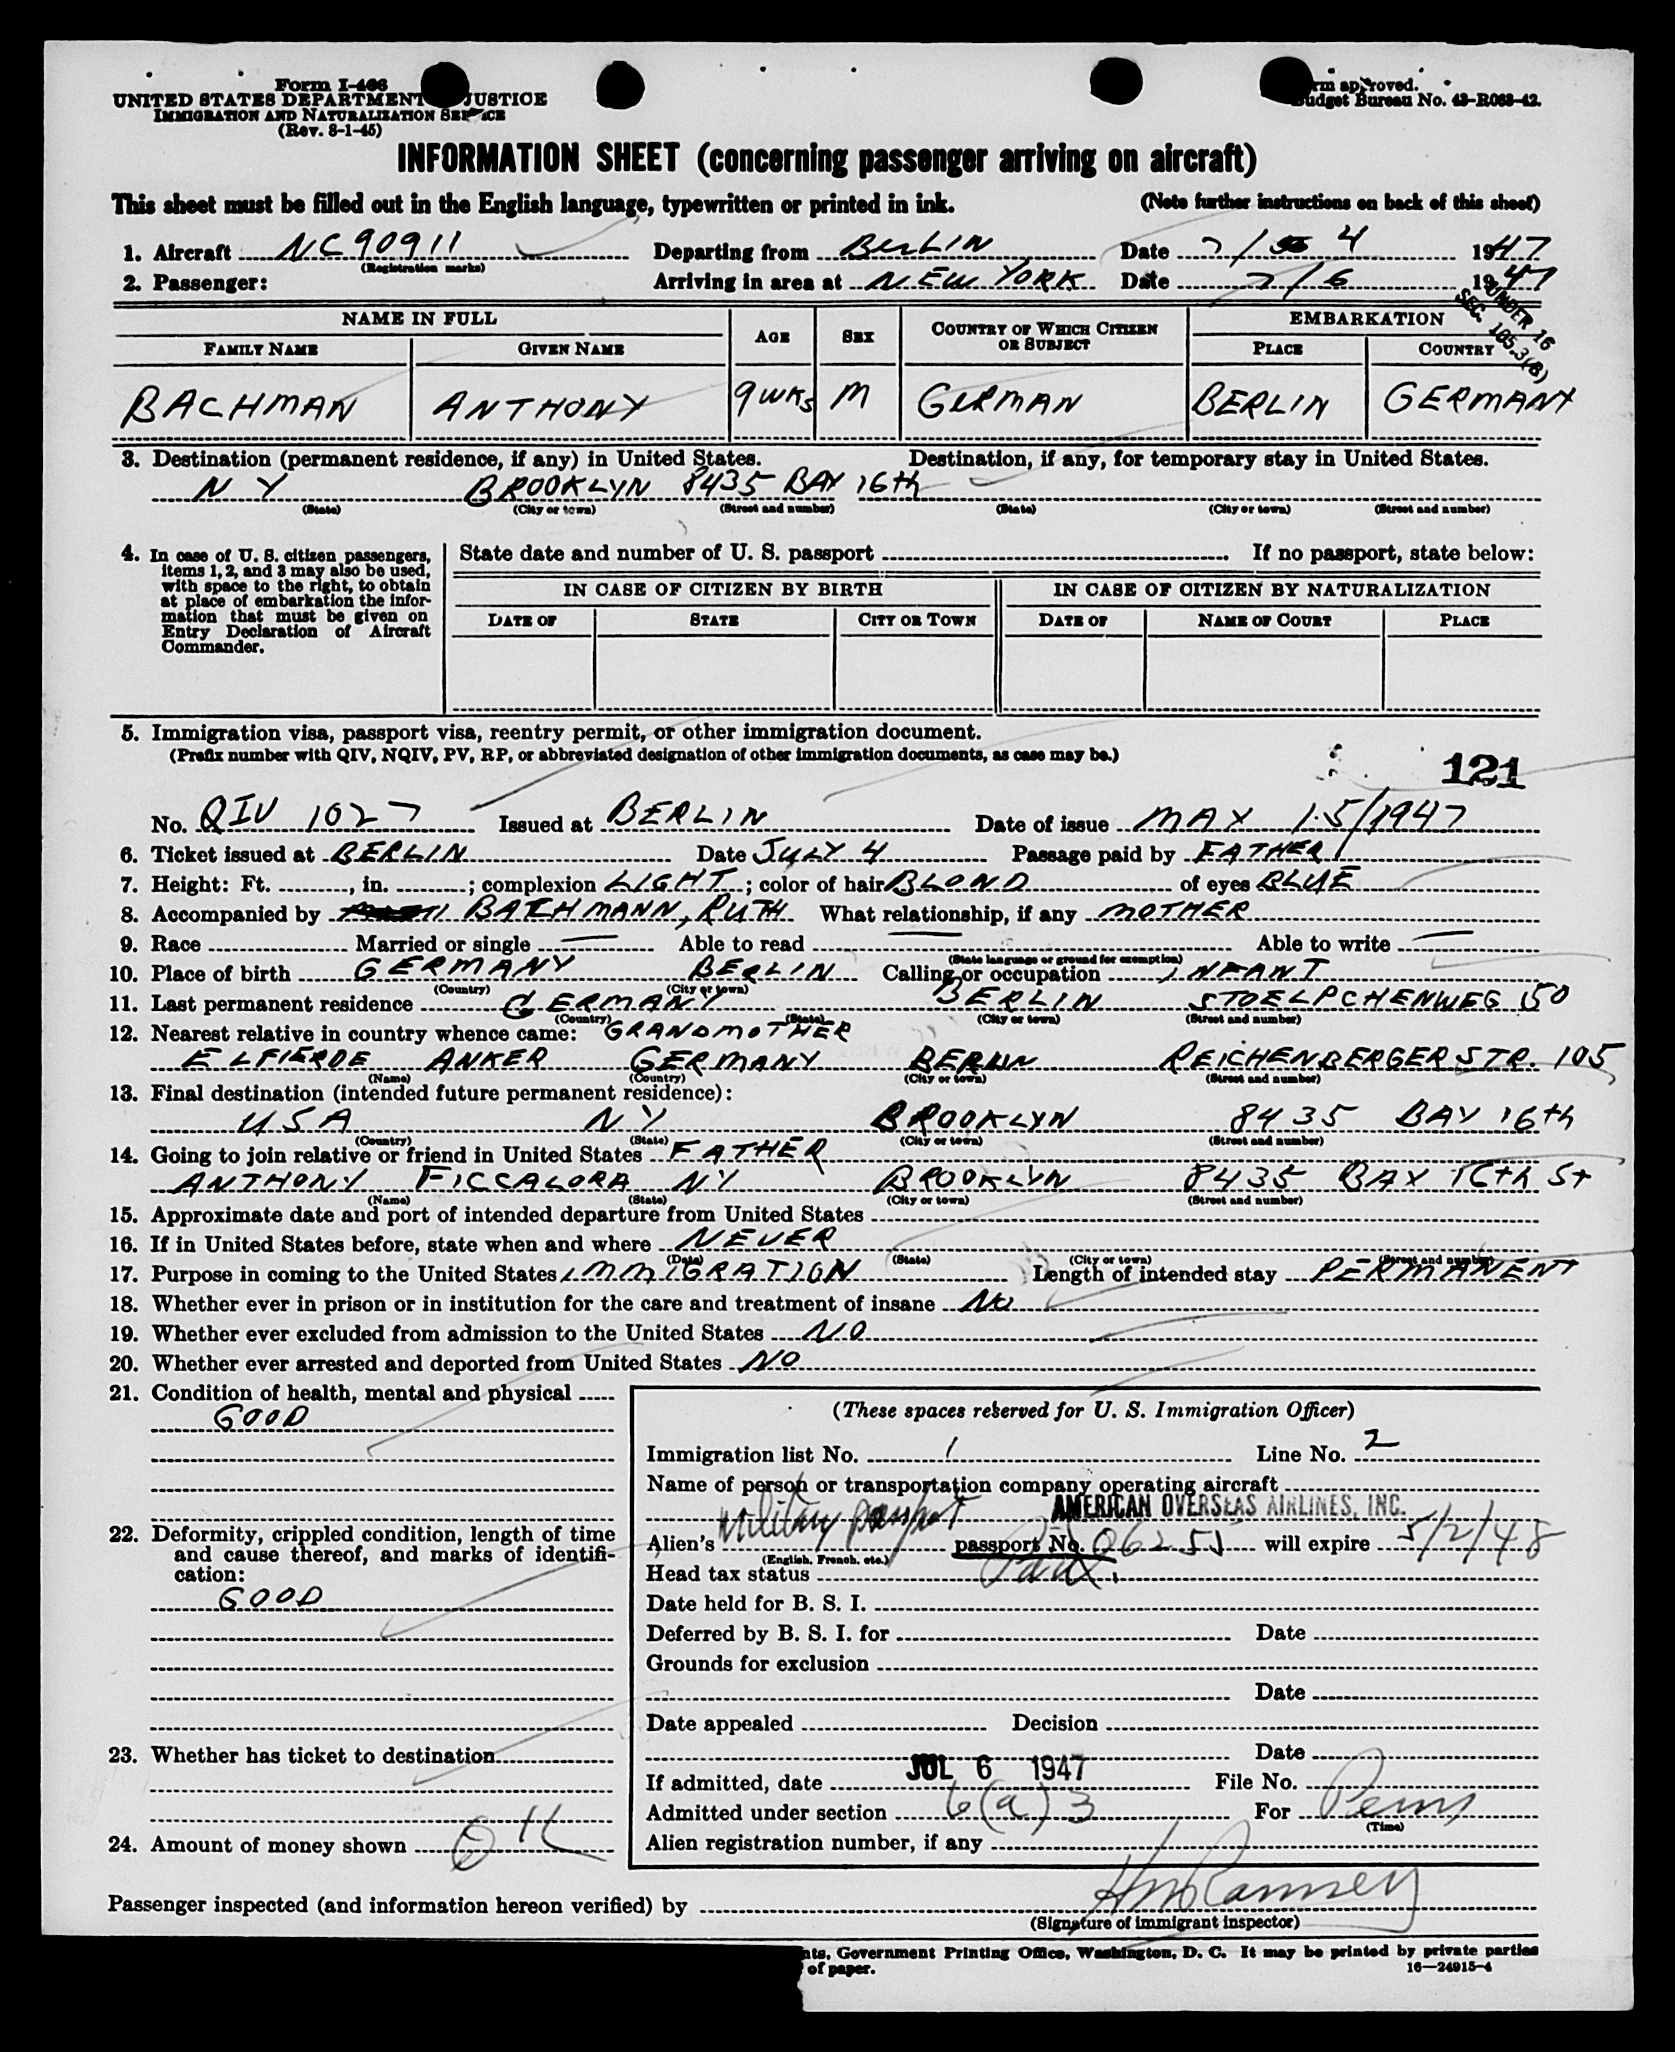 Form I-466
UNITED STATES DEPARTMENT JUSTICE
IMMIGRATION AND NATURALIZATION SERVICE
(Rev. 8-1-45)
rm approved.
Budget Bureau No. 43-R063-42.
INFORMATION SHEET (concerning passenger arriving on aircraft)
This sheet must be filled out in the English language, typewritten or printed in ink. (Note further instructions on back of this sheet)
1. Aircraft NC90911 Departing from BERLIN Date 7/ 4 1947
(Registration marks)
2. Passenger: Arriving in area at NEW YORK Date 7/6 1947
UNDER 16
SEC. 105.3(B)
NAME IN FULL AGE SEX COUNTRY OF WHICH CITIZEN OR SUBJECT EMBARKATION
FAMILY NAME GIVEN NAME PLACE COUNTRY
BACHMAN ANTHONY 9 WKS M GERMAN BERLIN GERMANY
3. Destination (permanent residence, if any) in United States. Destination, if any, for temporary stay in United States.
N Y BROOKLYN 8435 BAY 16th
(State) (City or town) (Street and number) (State) (City or town) (Street and number)
4. In case of U. S. citizen passengers, items 1, 2, and 3 may also be used, with space to the right, to obtain at place of embarkation the information that must be given on Entry Declaration of Aircraft Commander.
State date and number of U. S. passport If no passport, state below:
IN CASE OF CITIZEN BY BIRTH IN CASE OF CITIZEN BY NATURALIZATION
DATE OF STATE CITY OR TOWN DATE OF NAME OF COURT PLACE
5. Immigration visa, passport visa, reentry permit, or other immigration document.
(Prefix number with QIV, NQIV, PV, RP, or abbreviated designation of other immigration documents, as case may be.)
121
No. QIV 1027 Issued at BERLIN Date of issue MAY 15/1947
6. Ticket issued at BERLIN Date JULY 4 Passage paid by FATHER
7. Height: Ft. , in. ; complexion LIGHT ; color of hair BLOND of eyes BLUE
8. Accompanied by BACHMANN, RUTH What relationship, if any MOTHER
9. Race Married or single — Able to read — Able to write —
(State language or ground for exemption)
10. Place of birth GERMANY BERLIN Calling or occupation INFANT
(Country) (City or town)
11. Last permanent residence GERMANY BERLIN STOELPCHENWEG 50
(Country) (State) (City or town) (Street and number)
12. Nearest relative in country whence came: GRANDMOTHER
ELFIERDE ANKER GERMANY BERLIN REICHENBERGERSTR. 105
(Name) (Country) (City or town) (Street and number)
13. Final destination (intended future permanent residence):
USA NY BROOKLYN 8435 BAY 16th
(Country) (State) (City or town) (Street and number)
14. Going to join relative or friend in United States FATHER
ANTHONY FICCALORA NY BROOKLYN 8435 BAY 16th St
(Name) (State) (City or town) (Street and number)
15. Approximate date and port of intended departure from United States
16. If in United States before, state when and where NEVER
(Date) (State) (City or town) (Street and number)
17. Purpose in coming to the United States IMMIGRATION Length of intended stay PERMANENT
18. Whether ever in prison or in institution for the care and treatment of insane NO
19. Whether ever excluded from admission to the United States NO
20. Whether ever arrested and deported from United States NO
21. Condition of health, mental and physical
GOOD
22. Deformity, crippled condition, length of time and cause thereof, and marks of identification:
GOOD
23. Whether has ticket to destination
24. Amount of money shown OK
(These spaces reserved for U. S. Immigration Officer)
Immigration list No. 1 Line No. 2
Name of person or transportation company operating aircraft
AMERICAN OVERSEAS AIRLINES, INC.
Alien's Military passport passport No. 06255 will expire 5/2/48
(English, French, etc.)
Head tax status Paid
Date held for B. S. I.
Deferred by B. S. I. for Date
Grounds for exclusion
Date
Date appealed Decision
Date
If admitted, date JUL 6 1947 File No.
Admitted under section 6(a)3 For Perm
(Time)
Alien registration number, if any
Passenger inspected (and information hereon verified) by
(Signature of immigrant inspector)
nts, Government Printing Office, Washington, D. C. It may be printed by private parties
of paper.
16—24915-4